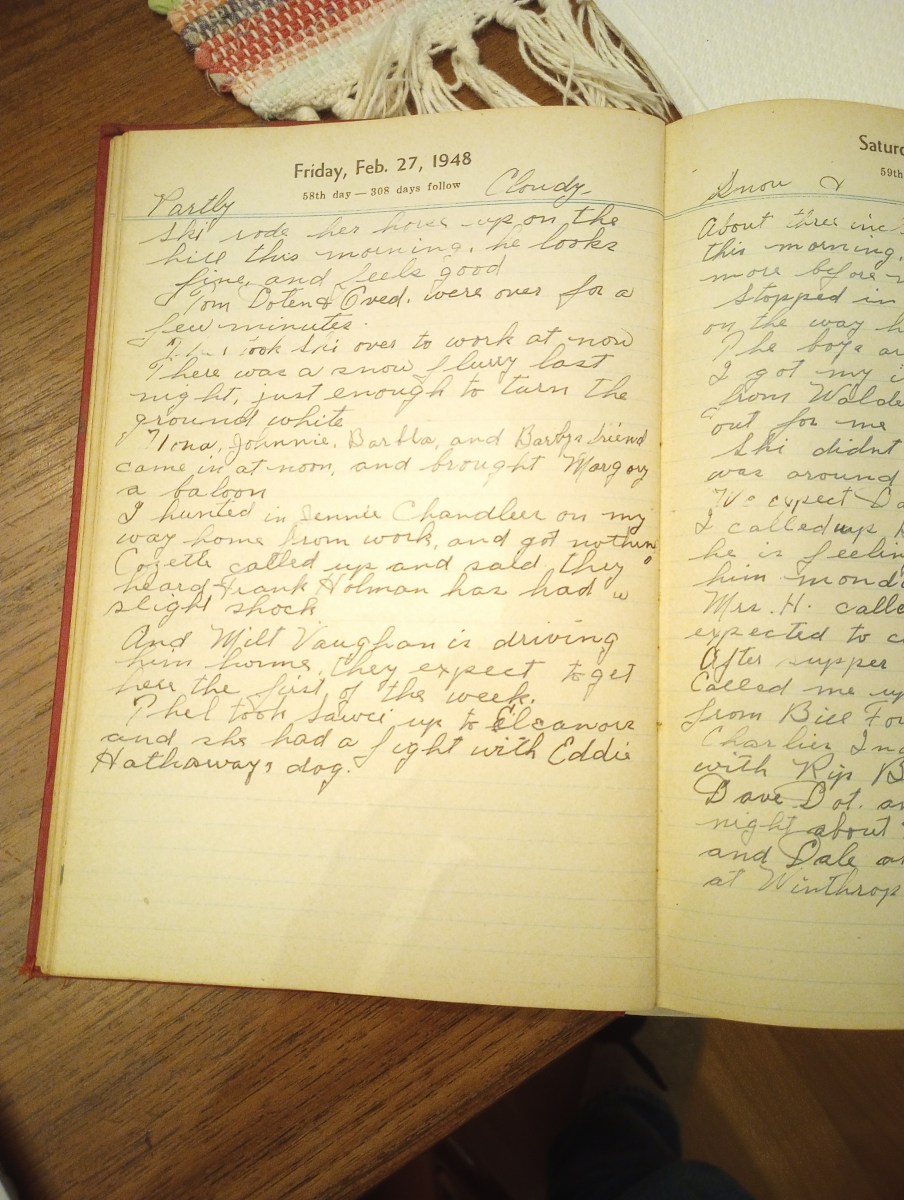 Friday, Feb. 27, 1948
58th day — 308 days follow
Partly Cloudy
Ski rode her horse up on the
hill this morning. he looks
fine, and feels good
Tom Doten & Oved. were over for a
few minutes.
took Ski over to work at now
There was a snow flurry last
night, just enough to turn the
ground white
Tina, Johnnie, Barbra, and Barbys friend
came in at noon, and brought Margory
a baloon
I hunted in Jennie Chandler on my
way home from work, and got nothing
Cozette called up and said they
heard Frank Holman has had a
slight shock
And Milt Vaughan is driving
him home, they expect to get
hear the first of the week.
Thel took up to Eleanors
and she had a fight with Eddie
Hathaways dog.
Satur
59th
Snow &
About three inc
this morning.
more before
Stopped in
on the way h
The boys ar
I got my i
from Walde
out for me
Ski didnt
was around
We expect Da
I called up
he is feelin
him mond
Mrs. H. calle
expected to c
After supper
Called me up
from Bill For
Charlies In
with Rip B
Dave Dot. an
night about
and Dale ar
at Winthrop